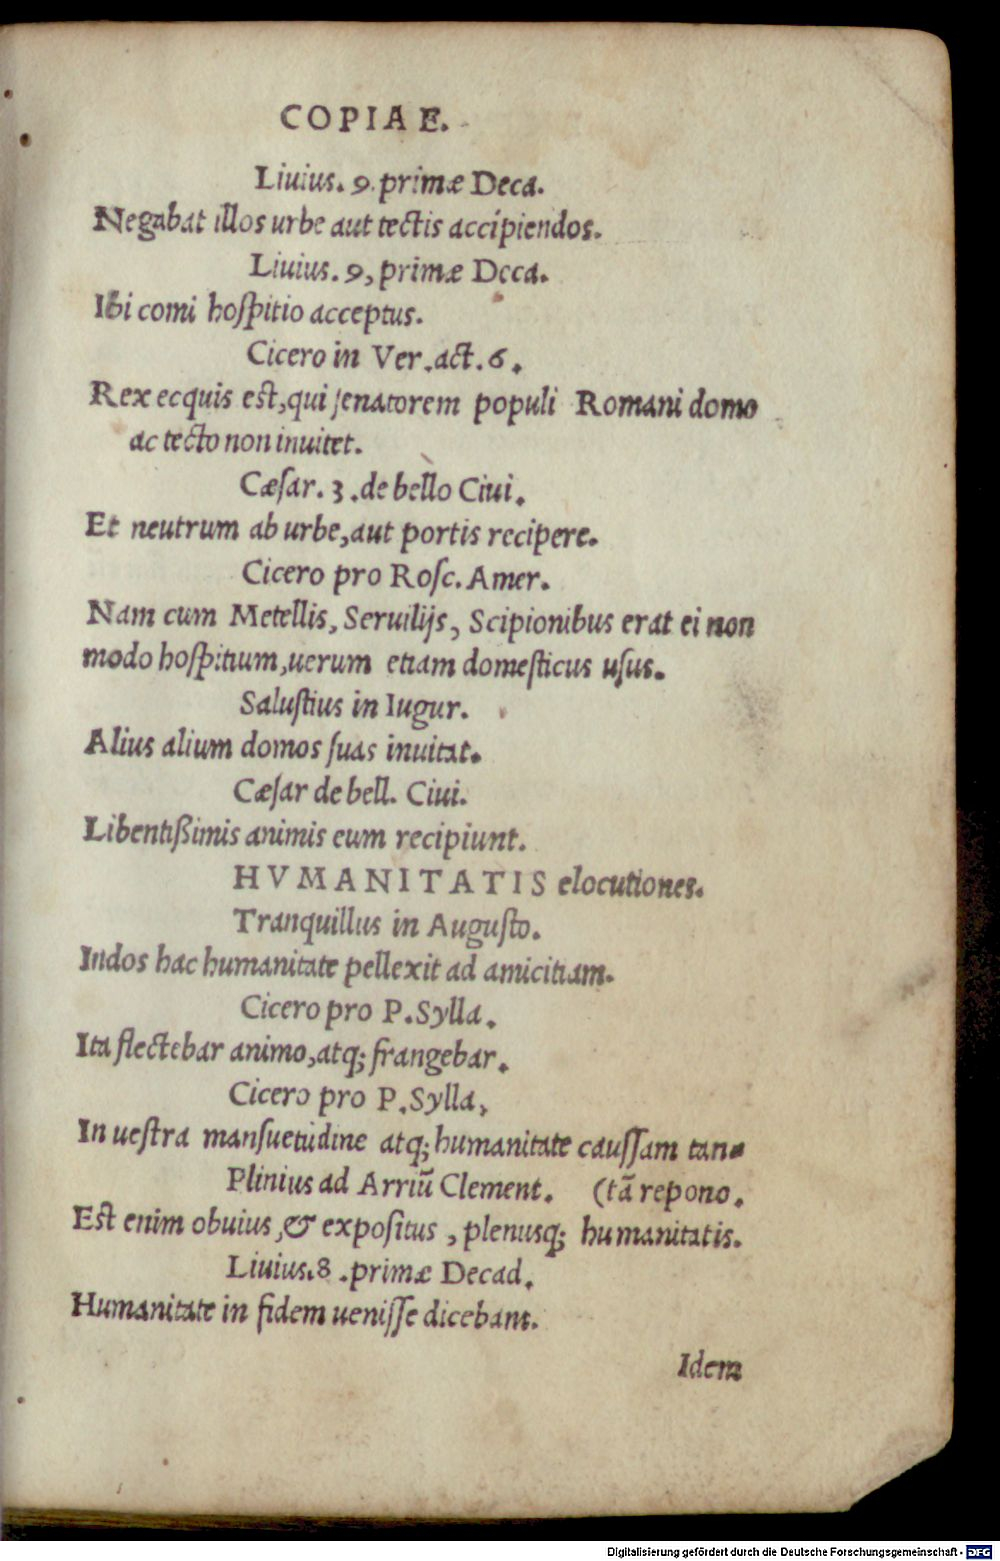 COPIAE.
Liuius. 9. primæ Deca.
Negabat illos urbe aut tectis accipiendos.
Liuius. 9, primæ Deca.
Ibi comi hoſpitio acceptus.
Cicero in Ver. act. 6.
Rex ecquis est, qui ſenatorem populi Romani domo
ac tecto non inuitet.
Cæſar. 3. de bello Ciui.
Et neutrum ab urbe, aut portis recipere.
Cicero pro Roſc. Amer.
Nam cum Metellis, Seruilijs, Scipionibus erat ei non
modo hoſpitium, uerum etiam domeſticus uſus.
Saluſtius in Iugur.
Alius alium domos ſuas inuitat.
Cæſar de bell. Ciui.
Libentißimis animis eum recipiunt.
HVMANITATIS elocutiones.
Tranquillus in Auguſto.
Indos hac humanitate pellexit ad amicitiam.
Cicero pro P. Sylla.
Ita flectebar animo, atq; frangebar.
Cicero pro P. Sylla,
In ueſtra manſuetudine atq; humanitate cauſſam tan-
Plinius ad Arriū Clement. (tā repono.
Est enim obuius, & expoſitus, plenusq; humanitatis.
Liuius. 8. primæ Decad.
Humanitate in fidem ueniſſe dicebant.
Idem
Digitalisierung gefördert durch die Deutsche Forschungsgemeinschaft - DFG